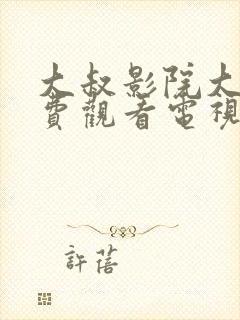 大叔影院大
費觀看電視
許蓓